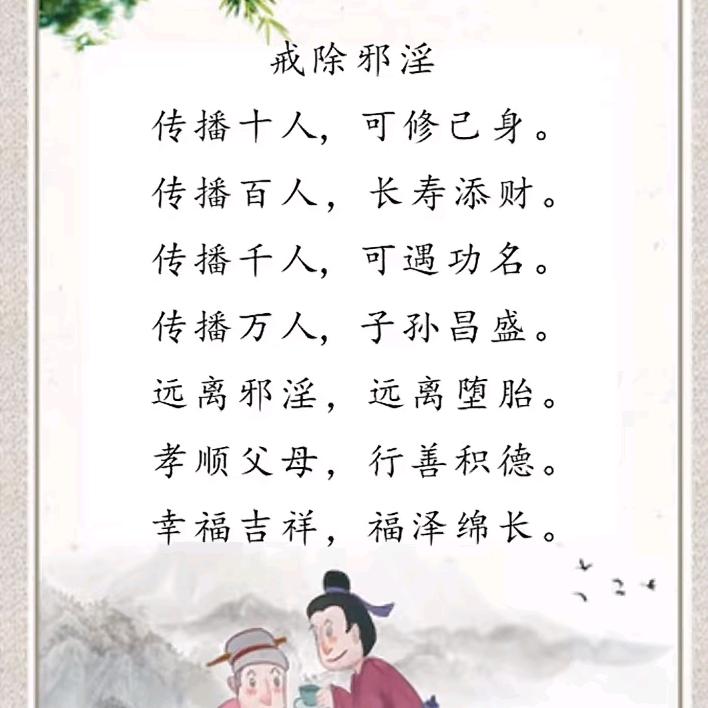 戒除邪淫
传播十人，可修己身。
传播百人，长寿添财。
传播千人，可遇功名。
传播万人，子孙昌盛。
远离邪淫，远离堕胎。
孝顺父母，行善积德。
幸福吉祥，福泽绵长。